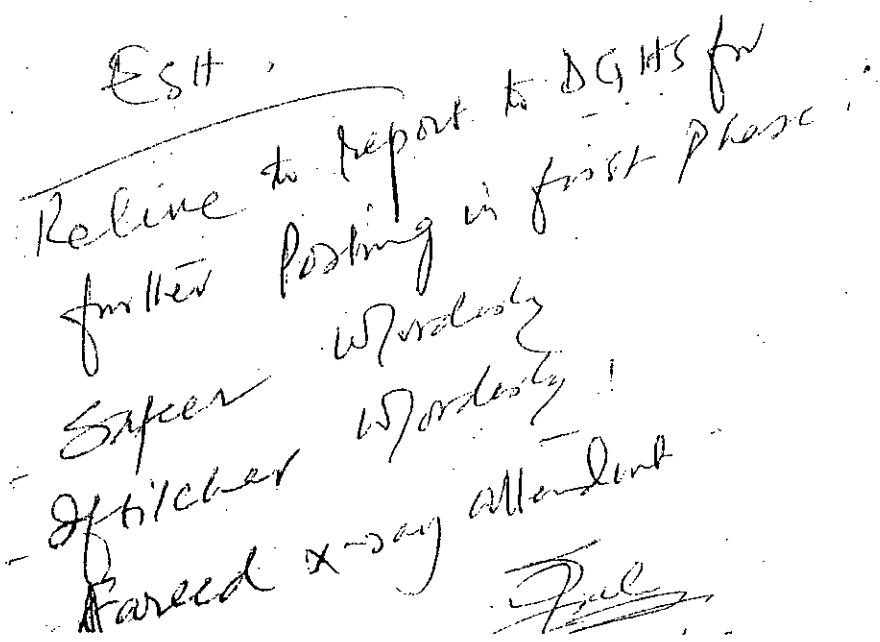 ESH.
Relive to report to DGHS for
further Posting in first Phase.
- Safeer W/orderly
- Iftikher W/orderly
Fareed x-ray attendant